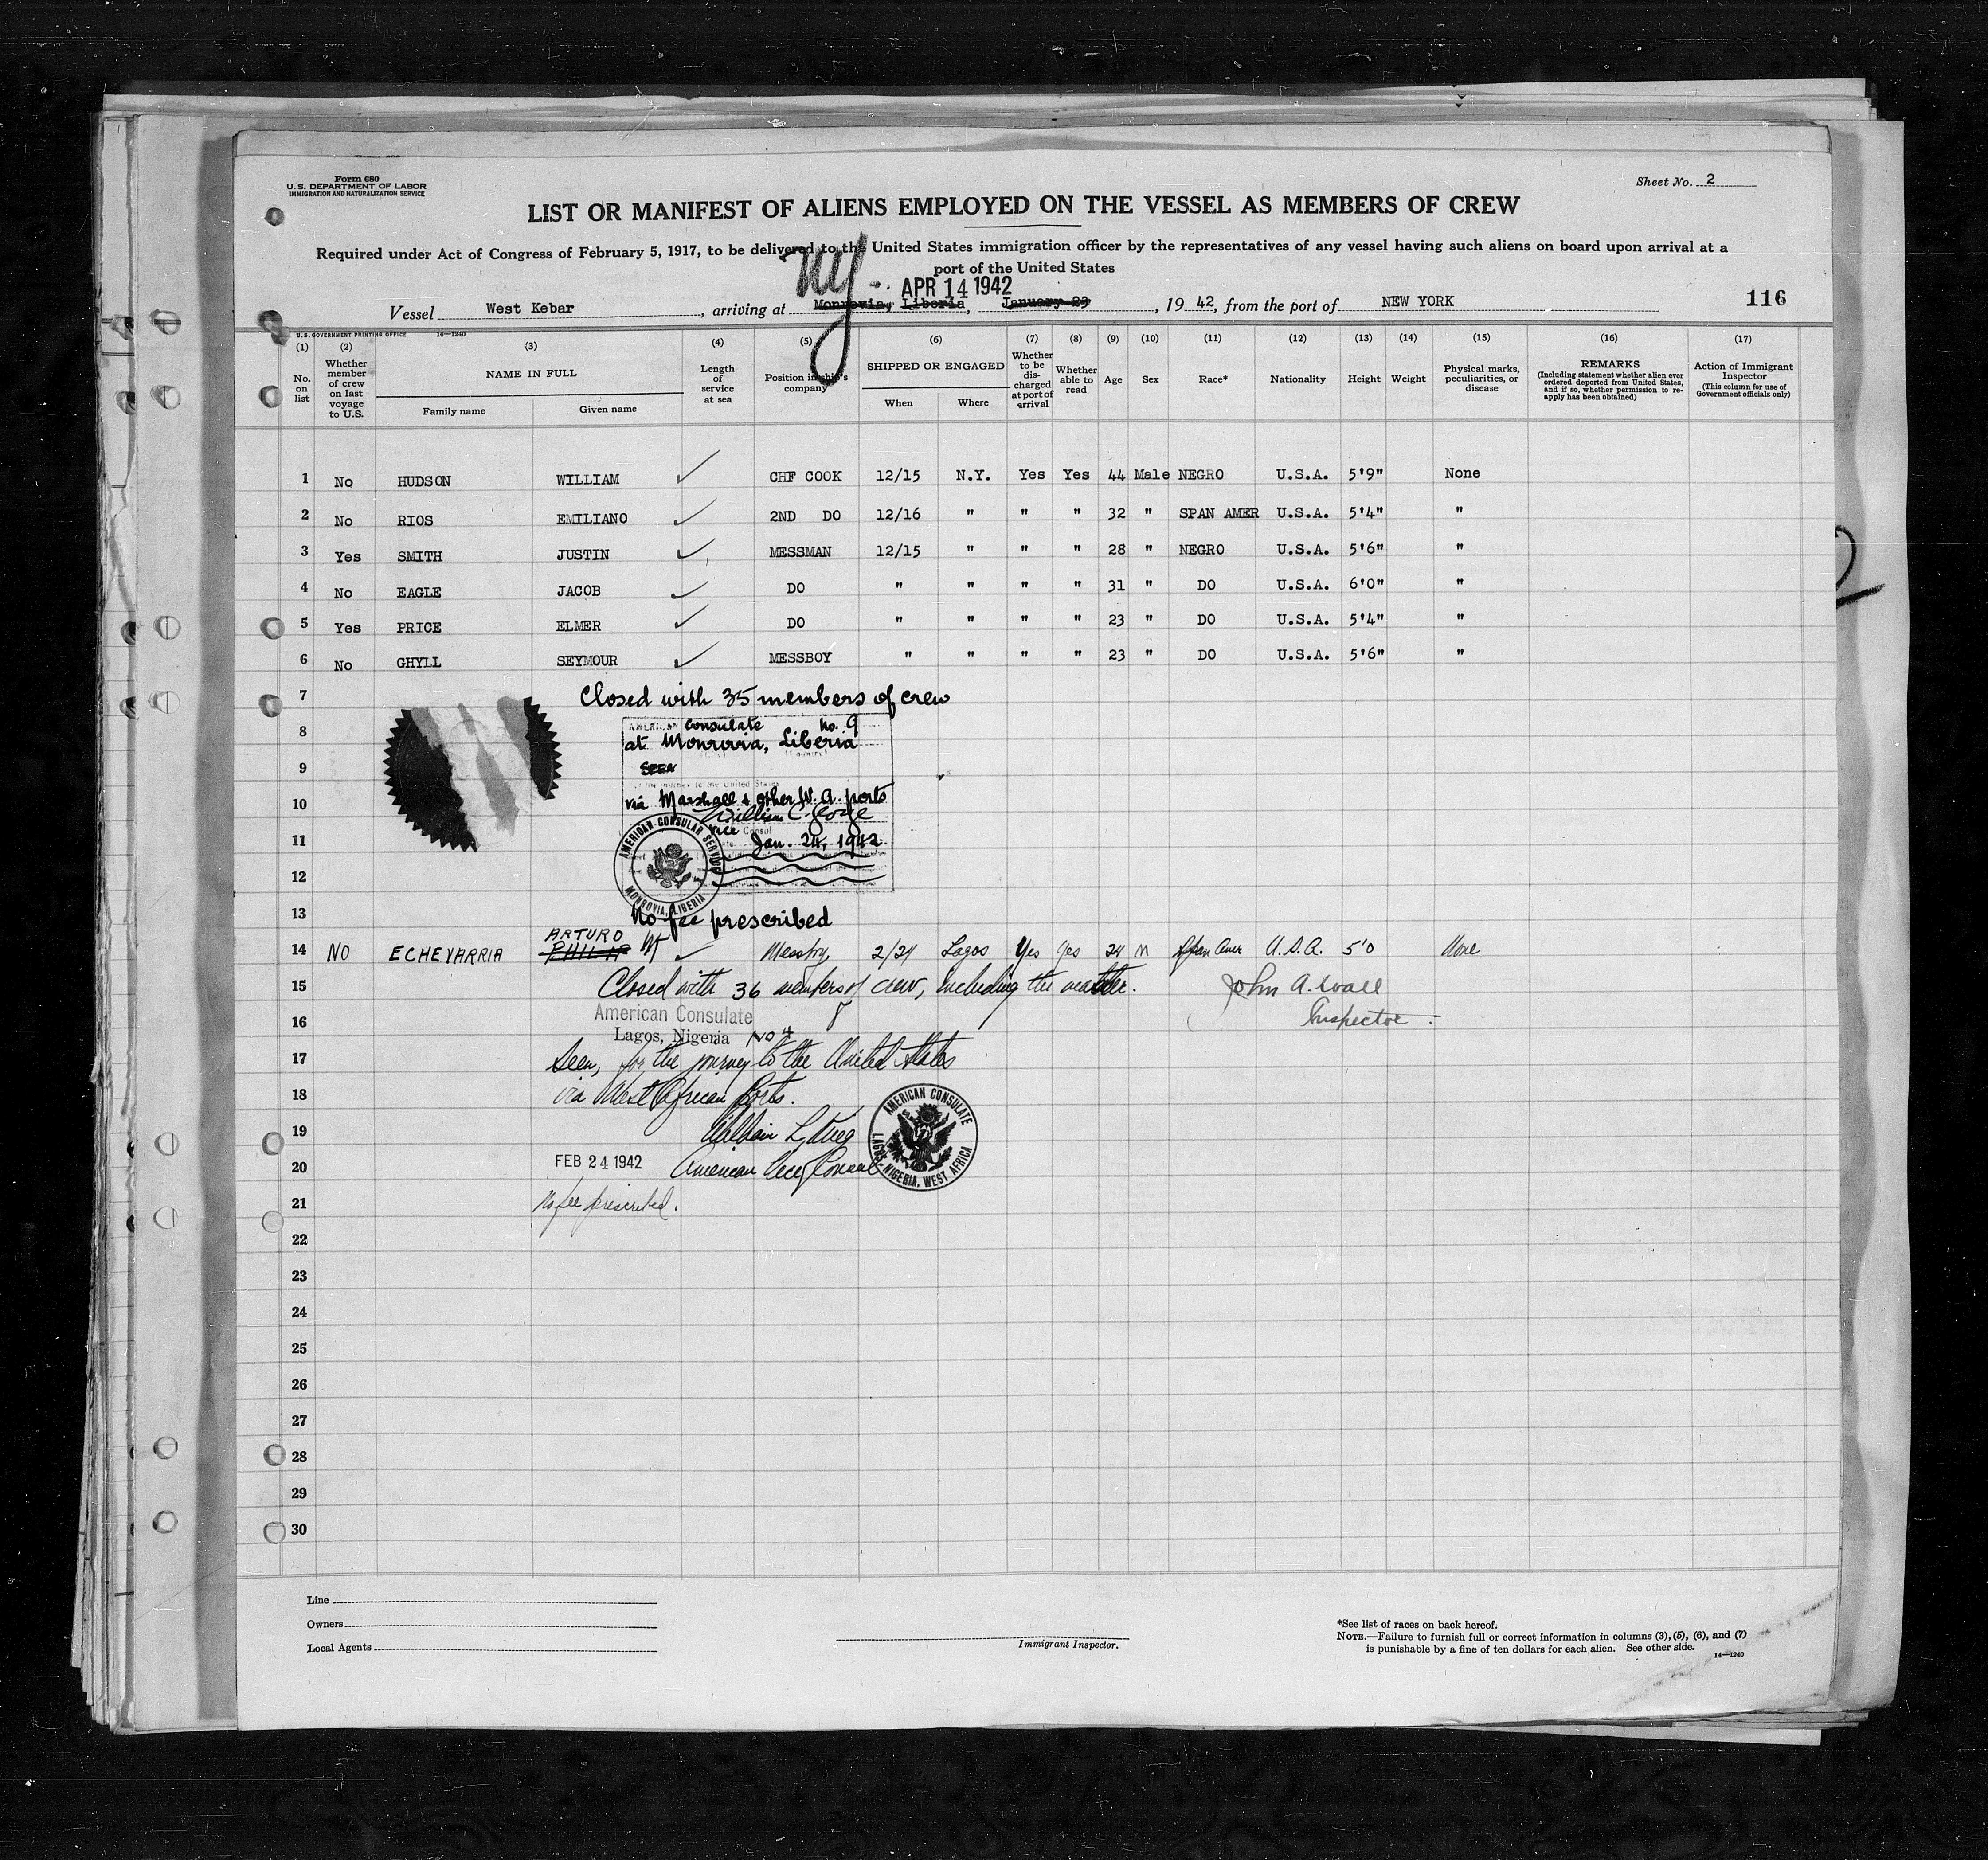 Form 680
U.S. DEPARTMENT OF LABOR
IMMIGRATION AND NATURALIZATION SERVICE
Sheet No. 2
LIST OR MANIFEST OF ALIENS EMPLOYED ON THE VESSEL AS MEMBERS OF CREW
Required under Act of Congress of February 5, 1917, to be delivered to the United States immigration officer by the representatives of any vessel having such aliens on board upon arrival at a
port of the United States
NY. APR 14 1942
Vessel West Kebar, arriving at Monrovia, Liberia, January 23, 1942, from the port of NEW YORK 116
U.S. GOVERNMENT PRINTING OFFICE 14—1240
(1) (2) (3) (4) (5) (6) (7) (8) (9) (10) (11) (12) (13) (14) (15) (16) (17)
No. on list
Whether member of crew on last voyage to U.S.
NAME IN FULL
Family name Given name
Length of service at sea
Position in ship's company
SHIPPED OR ENGAGED
When Where
Whether to be discharged at port of arrival
Whether able to read
Age
Sex
Race*
Nationality
Height
Weight
Physical marks, peculiarities, or disease
REMARKS
(Including statement whether alien ever ordered deported from United States, and if so, whether permission to reapply has been obtained)
Action of Immigrant Inspector
(This column for use of Government officials only)
1 No HUDSON WILLIAM CHF COOK 12/15 N.Y. Yes Yes 44 Male NEGRO U.S.A. 5'9" None
2 No RIOS EMILIANO 2ND DO 12/16 " " " 32 " SPAN AMER U.S.A. 5'4" "
3 Yes SMITH JUSTIN MESSMAN 12/15 " " " 28 " NEGRO U.S.A. 5'6" "
4 No EAGLE JACOB DO " " " " 31 " DO U.S.A. 6'0" "
5 Yes PRICE ELMER DO " " " " 23 " DO U.S.A. 5'4" "
6 No GHYLL SEYMOUR MESSBOY " " " " 23 " DO U.S.A. 5'6" "
7 Closed with 35 members of crew
8 AMERICAN Consulate No. 9
at Monrovia, Liberia
9 SEEN
10 via Marshall & other W. A. ports
William C. George
Vice Consul
11 Jan. 24, 1942
AMERICAN CONSULAR SERVICE
MONROVIA, LIBERIA
12
13 No fee prescribed
ARTURO
14 NO ECHEVARRIA PHILIP M Messboy 2/24 Lagos Yes Yes 24 M Span Amer U.S.A. 5'0 None
15 Closed with 36 members of crew, including the master. John A. Wall
16 American Consulate Inspector
Lagos, Nigeria No 4
17 Seen, for the journey to the United States
18 via West African Ports.
19 William L
20 FEB 24 1942 American Vice Consul
AMERICAN CONSULATE
LAGOS, NIGERIA, WEST AFRICA
21 No fee prescribed.
22
23
24
25
26
27
28
29
30
Line
Owners
Local Agents
Immigrant Inspector.
*See list of races on back hereof.
NOTE.—Failure to furnish full or correct information in columns (3), (5), (6), and (7)
is punishable by a fine of ten dollars for each alien. See other side.
14—1240